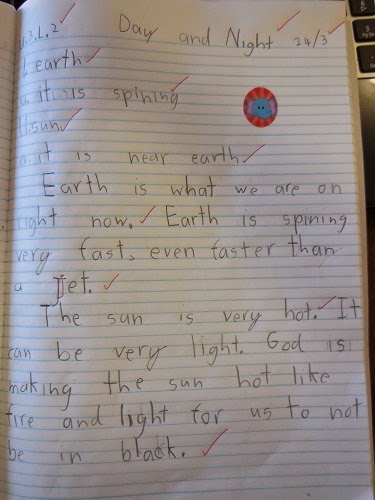 U.3.L.2 Day and Night 24/3
1. earth
a. it is spining
2. sun
a. it is near earth
Earth is what we are on
right now. Earth is spining
very fast, even faster than
a jet.
The sun is very hot. It
can be very light. God is
making the sun hot like
fire and light for us to not
be in black.